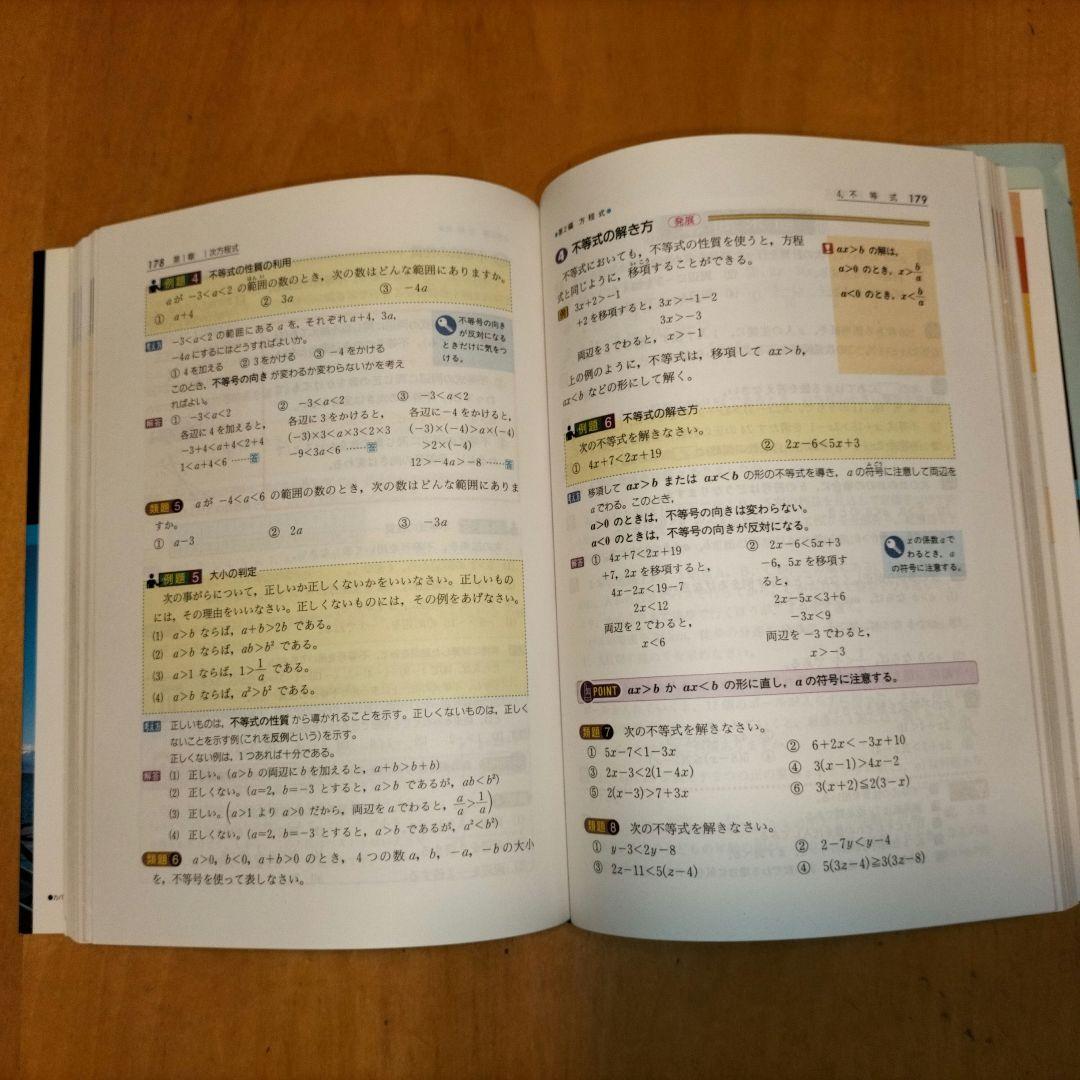 178 第1章 1次方程式
例題 4 不等式の性質の利用
aが −3<a<2 の範囲の数のとき，次の数はどんな範囲にありますか。
① a+4 ② 3a ③ −4a
考え方 −3<a<2 の範囲にある a を，それぞれ a+4, 3a,
−4a にするにはどうすればよいか。
① 4を加える ② 3をかける ③ −4をかける
このとき，不等号の向きが変わるか変わらないかを考え
ればよい。
不等号の向き
が反対になる
ときだけに気をつ
ける。
解答 ① −3<a<2
各辺に4を加えると，
−3+4<a+4<2+4
1<a+4<6 ……答
② −3<a<2
各辺に3をかけると，
(−3)×3<a×3<2×3
−9<3a<6 ……答
③ −3<a<2
各辺に−4をかけると，
(−3)×(−4)>a×(−4)
>2×(−4)
12>−4a>−8 ……答
類題 5 aが −4<a<6 の範囲の数のとき，次の数はどんな範囲にありま
すか。
① a−3 ② 2a ③ −3a
例題 5 大小の判定
次の事がらについて，正しいか正しくないかをいいなさい。正しいもの
には，その理由をいいなさい。正しくないものには，その例をあげなさい。
(1) a>b ならば，a+b>2b である。
(2) a>b ならば，ab>b² である。
(3) a>1 ならば，1>1/a である。
(4) a>b ならば，a²>b² である。
考え方 正しいものは，不等式の性質から導かれることを示す。正しくないものは，正しく
ないことを示す例(これを反例という)を示す。
正しくない例は，1つあれば十分である。
解答 (1) 正しい。(a>b の両辺にbを加えると，a+b>b+b)
(2) 正しくない。(a=2, b=−3 とすると，a>b であるが，ab<b²)
(3) 正しい。(a>1 より a>0 だから，両辺をaでわると，a/a>1/a)
(4) 正しくない。(a=2, b=−3 とすると，a>b であるが，a²<b²)
類題 6 a>0, b<0, a+b>0 のとき，4つの数 a, b, −a, −b の大小
を，不等号を使って表しなさい。
4. 不等式 179
●第2編 方程式●
4 不等式の解き方 発展
不等式においても，不等式の性質を使うと，方程
式と同じように，移項することができる。
いこう
例 3x+2>−1
+2を移項すると，3x>−1−2
3x>−3
両辺を3でわると，x>−1
上の例のように，不等式は，移項して ax>b,
ax<b などの形にして解く。
ax>b の解は，
a>0 のとき，x>b/a
a<0 のとき，x<b/a
例題 6 不等式の解き方
次の不等式を解きなさい。
① 4x+7<2x+19 ② 2x−6<5x+3
考え方 移項して ax>b または ax<b の形の不等式を導き，aの符号に注意して両辺を
aでわる。このとき，
a>0 のときは，不等号の向きは変わらない。
a<0 のときは，不等号の向きが反対になる。
解答 ① 4x+7<2x+19
+7, 2xを移項すると，
4x−2x<19−7
2x<12
両辺を2でわると，
x<6
② 2x−6<5x+3
−6, 5xを移項す
ると，
2x−5x<3+6
−3x<9
両辺を−3でわると，
x>−3
xの係数aで
わるとき，a
の符号に注意する。
POINT ax>b か ax<b の形に直し，aの符号に注意する。
類題 7 次の不等式を解きなさい。
① 5x−7<1−3x ② 6+2x<−3x+10
③ 2x−3<2(1−4x) ④ 3(x−1)>4x−2
⑤ 2(x−3)>7+3x ⑥ 3(x+2)≦2(3−x)
類題 8 次の不等式を解きなさい。
① y−3<2y−8 ② 2−7y<y−4
③ 2z−11<5(z−4) ④ 5(3z−4)≧3(3z−8)